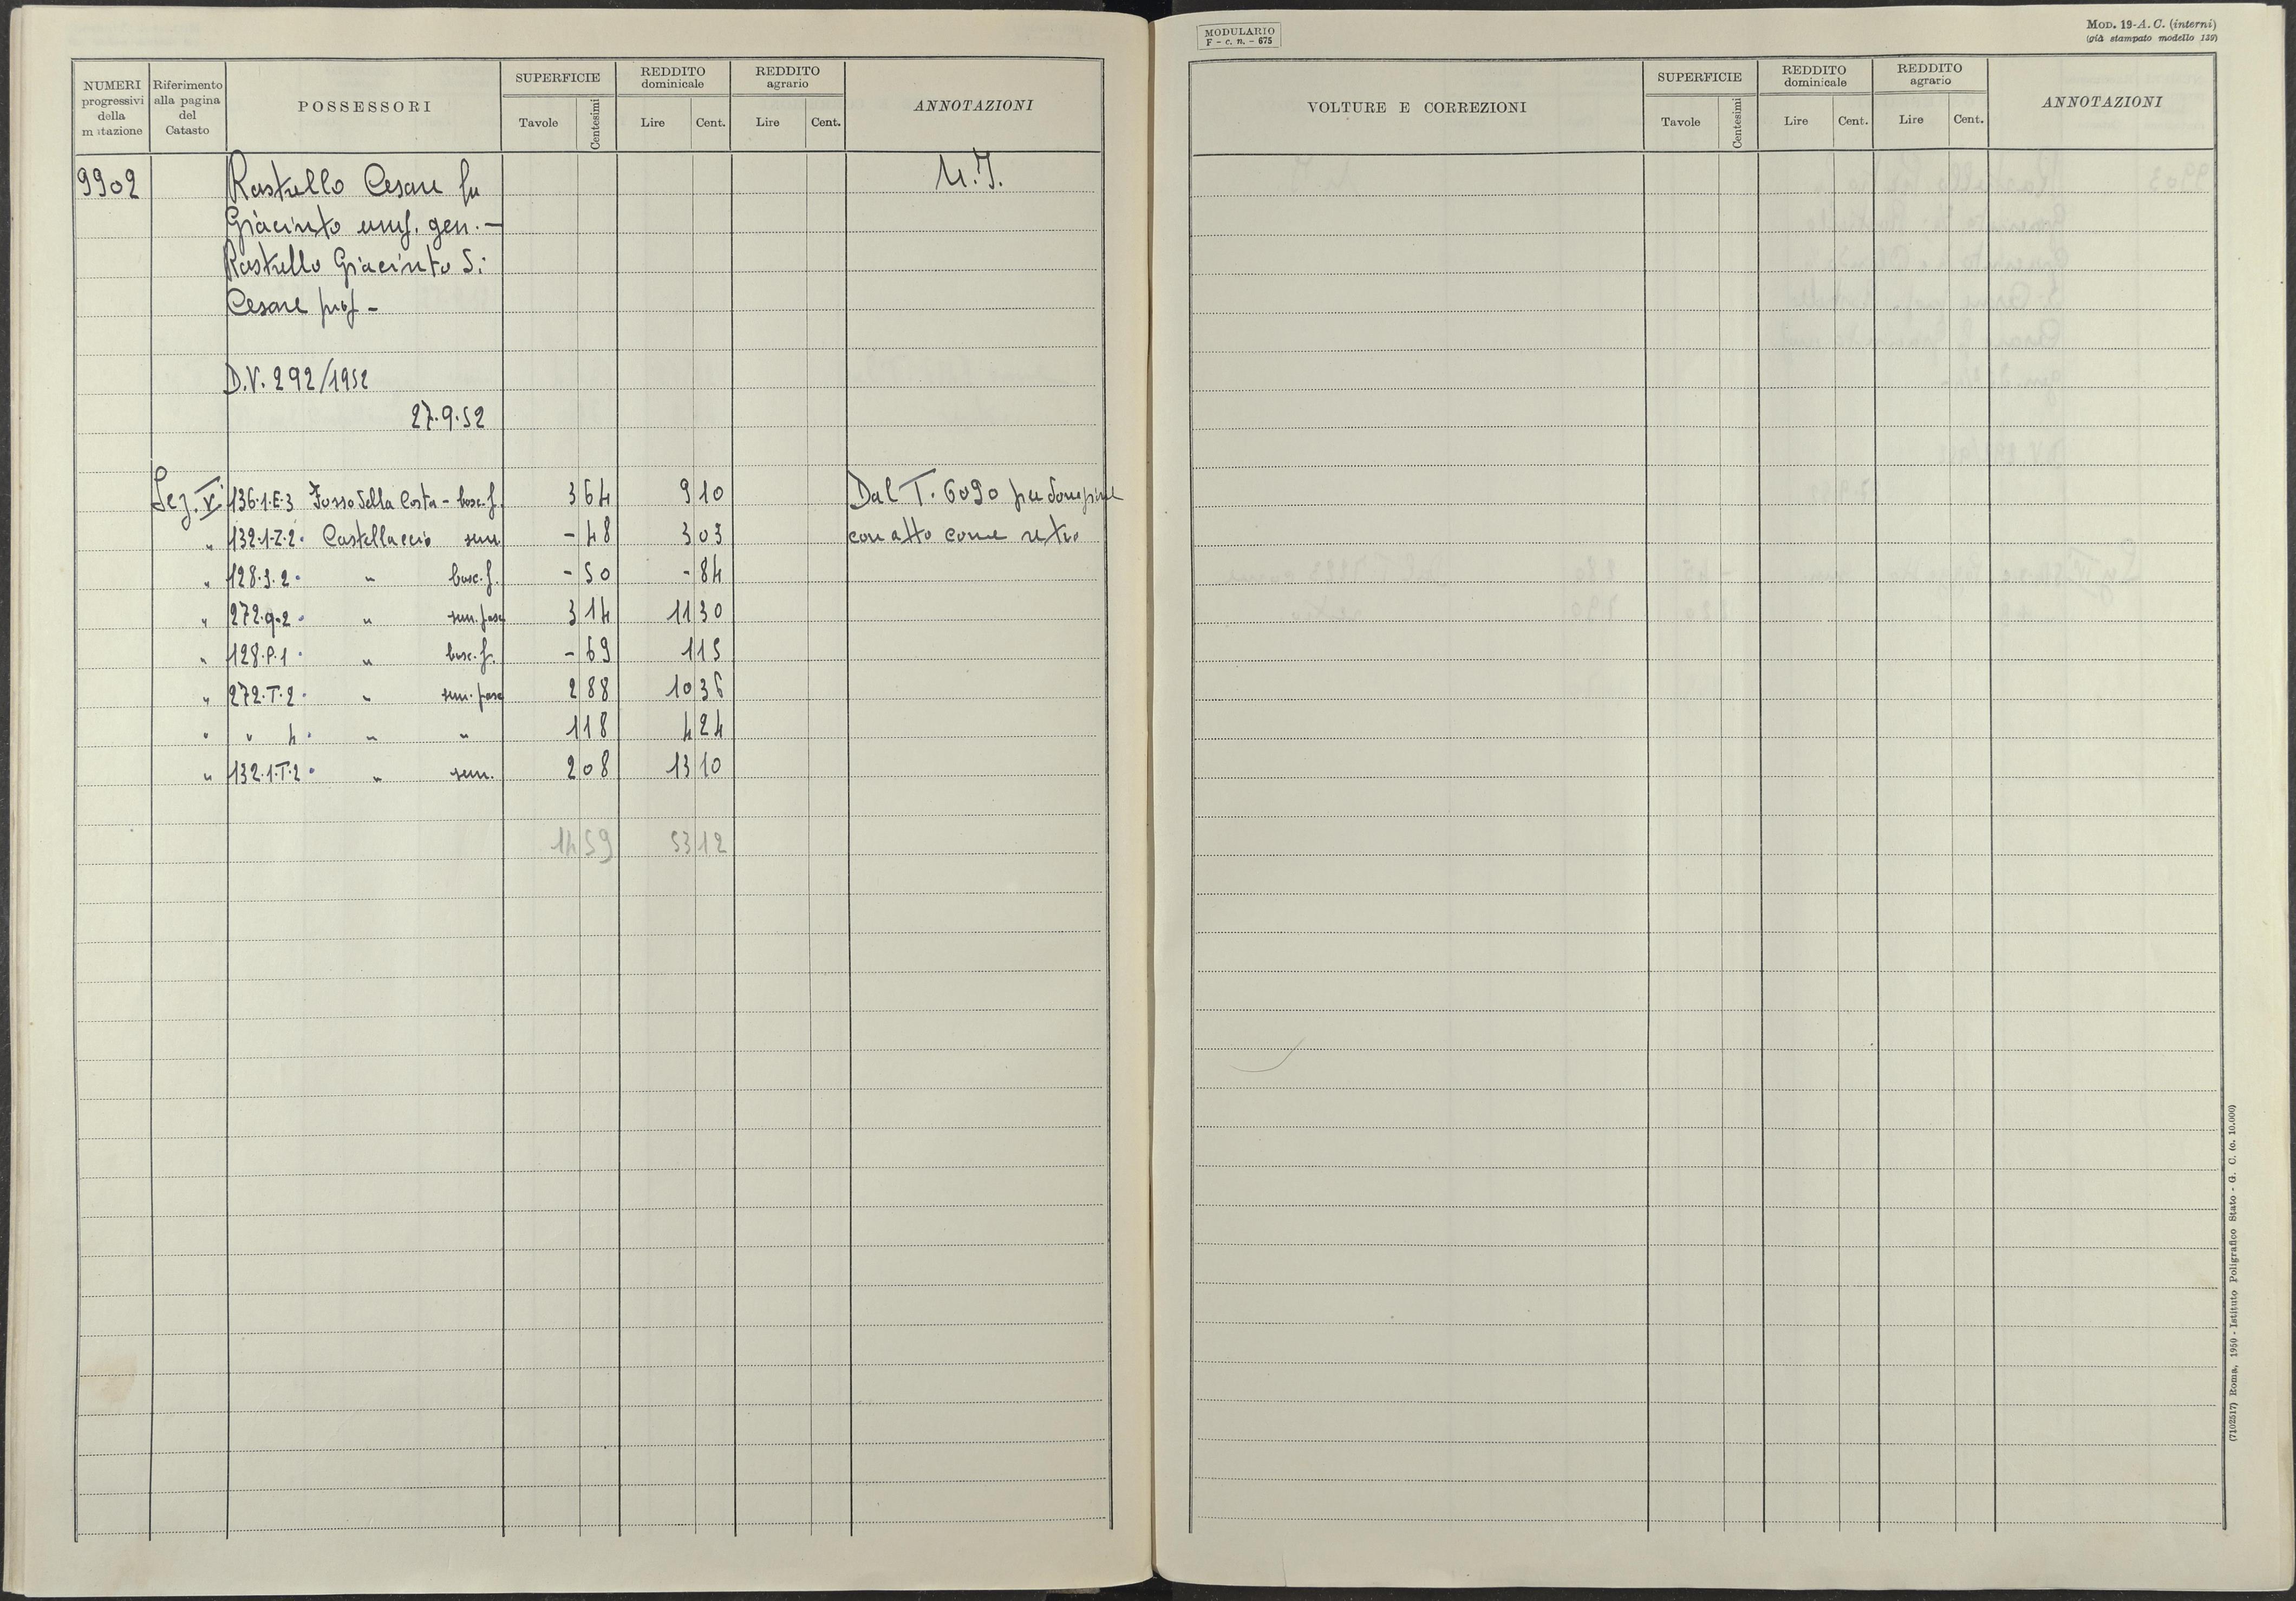 NUMERI progressivi della mutazione
Riferimento alla pagina del Catasto
POSSESSORI
SUPERFICIE
Tavole Centesimi
REDDITO dominicale
Lire Cent.
REDDITO agrario
Lire Cent.
ANNOTAZIONI
9902 Rastrello Cesare fu U.I.
Giacinto usuf. gen. -
Rastrello Giacinto di
Cesare prop -
D.V. 292/1952
27.9.52
Sez. V 136.1.E.3 Fosso della Costa - bosc. f. 3 64 9 10 Dal T. 6090
" 132.1.Z.2. Castellaccio sem - 48 3 03 con atto come retro
" 128.3.2. " bosc. f. - 50 - 84
" 272.9.2. " sem. pasc 3 14 11 30
" 128.P.1. " bosc. f. - 69 1 15
" 272.T.2. " sem. pasc 2 88 10 36
" " 4. " " 1 18 4 24
" 132.1.T.2. " sem. 2 08 13 10
14 59 53 12
MODULARIO
F - c. n. - 675
MOD. 19-A. C. (interni)
(già stampato modello 139)
VOLTURE E CORREZIONI
SUPERFICIE
Tavole Centesimi
REDDITO dominicale
Lire Cent.
REDDITO agrario
Lire Cent.
ANNOTAZIONI
(7102517) Roma, 1950 - Istituto Poligrafico Stato - G. C. (c. 10.000)